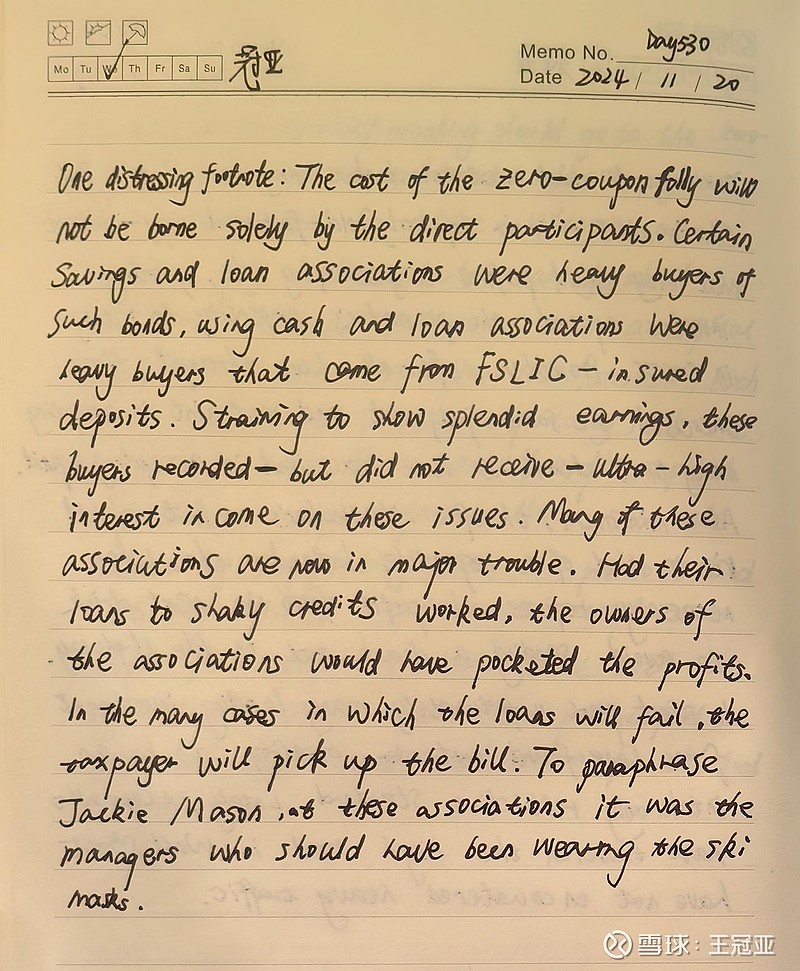 Mo Tu We Th Fr Sa Su
冠亚
Memo No. Day530
Date 2024 / 11 / 20
One distressing footnote: The cost of the zero-coupon folly will
not be borne solely by the direct participants. Certain
Savings and loan associations were heavy buyers of
such bonds, using cash and loan associations were
heavy buyers that came from FSLIC-insured
deposits. Straining to show splendid earnings, these
buyers recorded- but did not receive - ultra-high
interest income on these issues. Many of these
associations are now in major trouble. Had their
loans to shaky credits worked, the owners of
the associations would have pocketed the profits.
In the many cases in which the loans will fail, the
taxpayer will pick up the bill. To paraphrase
Jackie Mason, at these associations it was the
managers who should have been wearing the ski
masks.
雪球:王冠亚